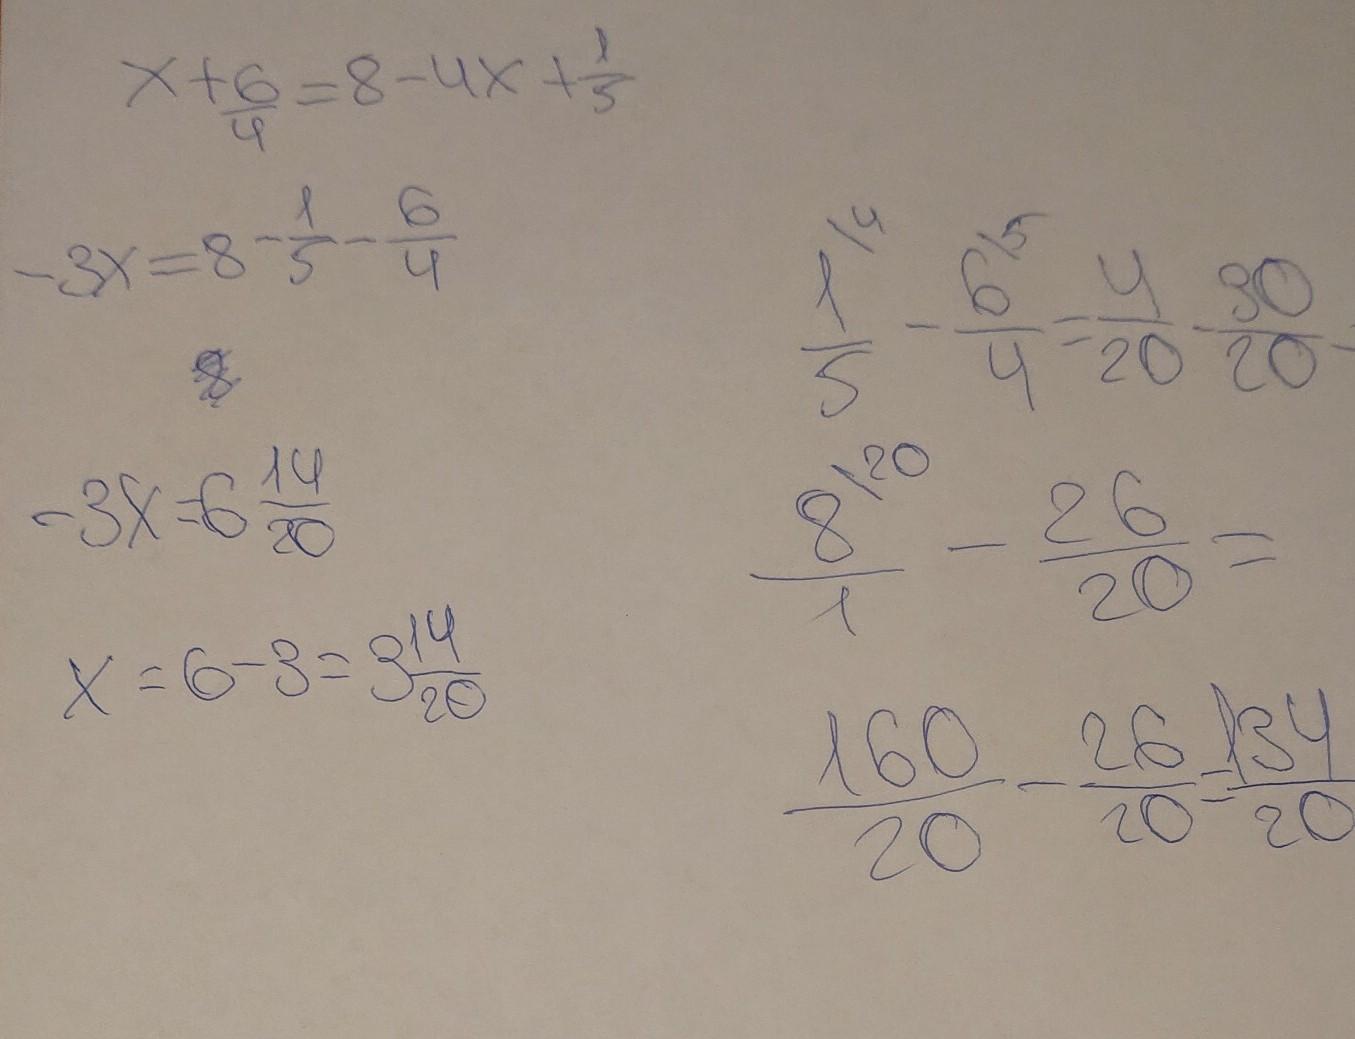 x + 6/4 = 8 - 4x + 1/5
-3x = 8 - 1/5 - 6/4
-3x = 6 14/20
x = 6 - 3 = 3 14/20
1/5 \4 - 6/4 \5 = 4/20 - 30/20 -
8/1 \20 - 26/20 =
160/20 - 26/20 = 134/20